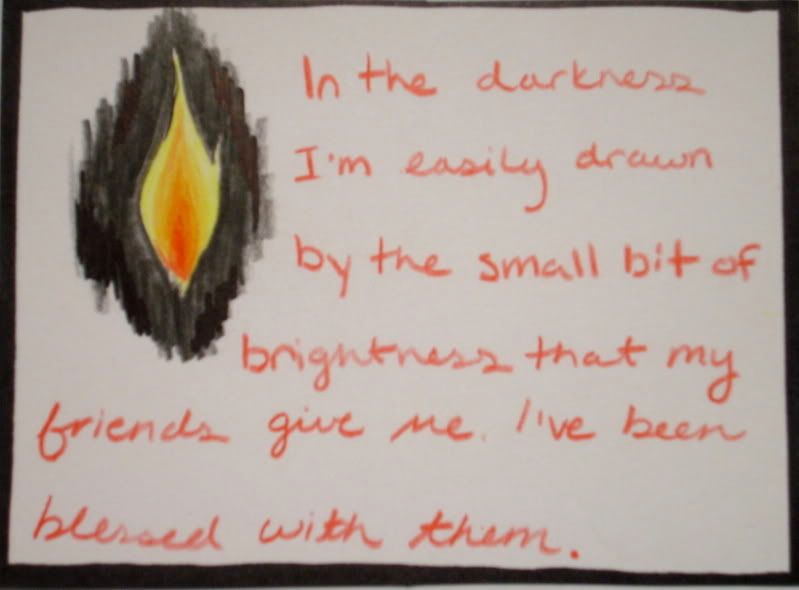 In the darkness
I'm easily drawn
by the small bit of
brightness that my
friends give me. I've been
blessed with them.